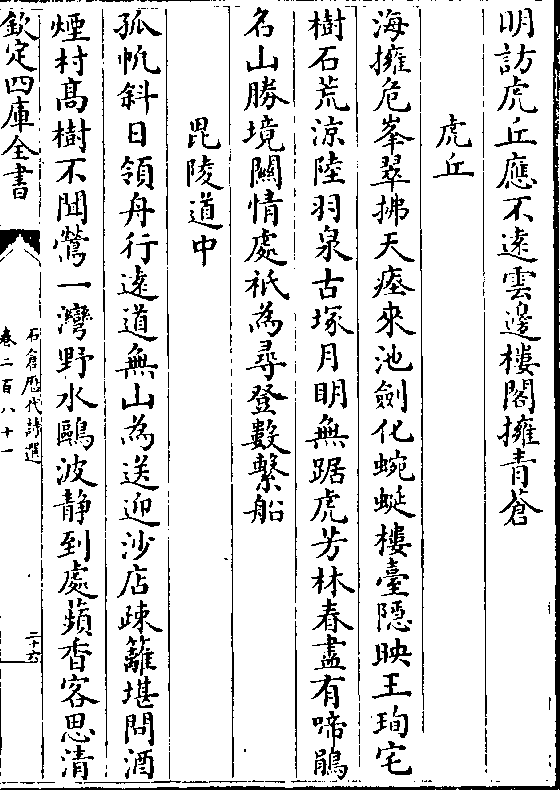 明訪虎丘應不遠雲邊樓閣擁青蒼
虎丘
海擁危峯翠拂天瘞來池劍化蜿蜒樓臺隱映王珣宅
樹石荒涼陸羽泉古塚月明無踞虎芳林春盡有啼鵑
名山勝境關情處祇為尋登數繫船
毘陵道中
孤帆斜日領舟行遠道無山為送迎沙店疎籬堪問酒
煙村髙樹不聞鶯一灣野水鷗波静到處蘋香客思清
欽定四庫全書
石倉歷代詩選
卷二百八十一
二十六